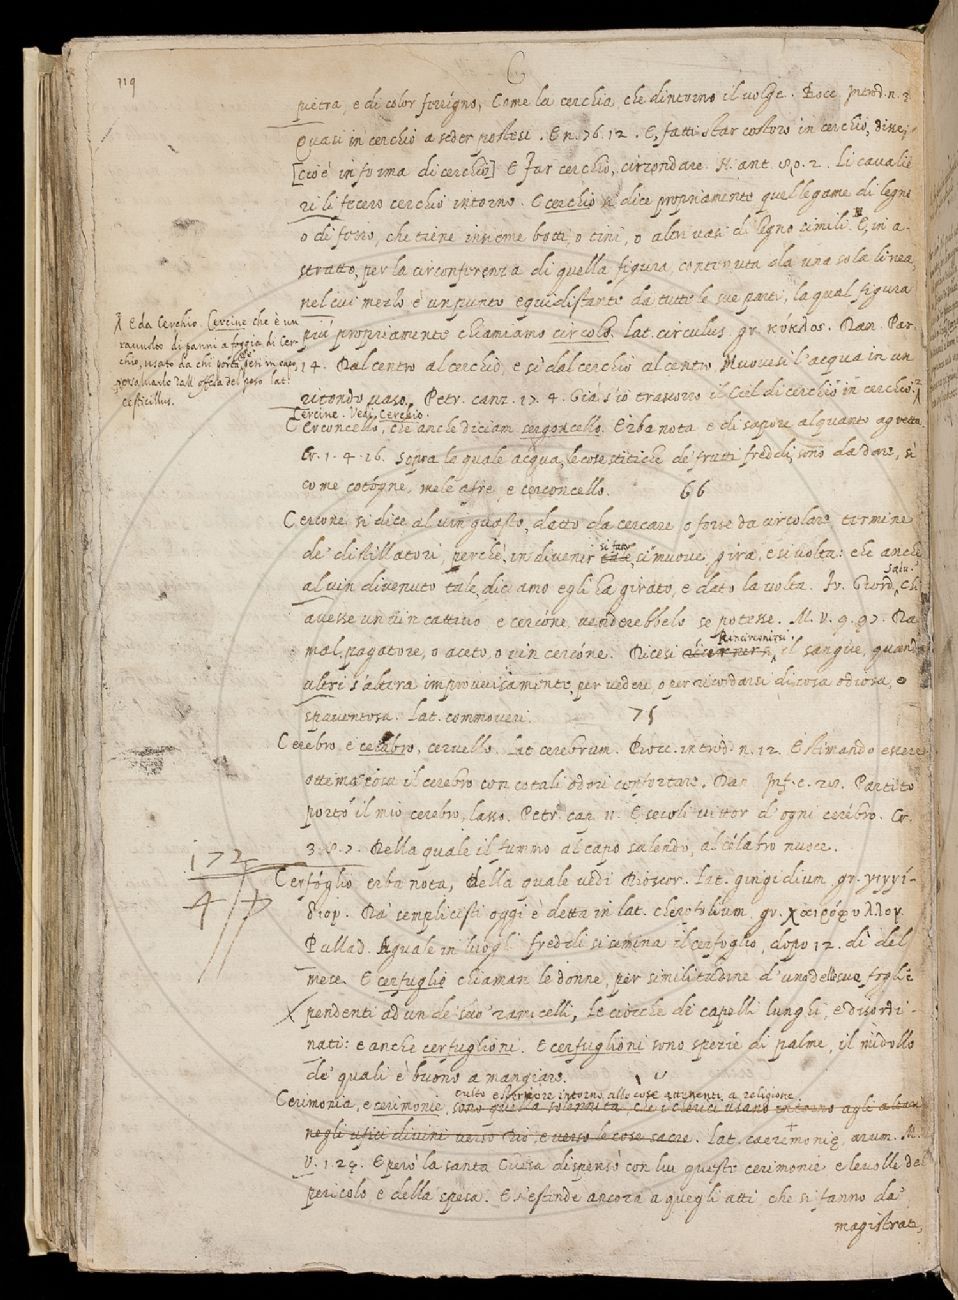 119
C
pietra, e di color ferrigno, Come la cerchia, che dintorno il volge. Bocc. Introd. n. 2.
Quasi in cerchio a seder postesi. E n. 76. 12. E, fatti star costoro in cerchio, disse.
[cioè in forma di cerchio] E Far cerchio, circondare. li cavalie
ri li fecero cerchio intorno. E cerchio si dice propriamente quel legame di legno
o di ferro, che tiene insieme botti, o tini, o altri vasi di legno simili. E, in a-
stratto, per la circonferenza di quella figura, contenuta da una sola linea,
nel cui mezzo è un punto equidistante da tutte le sue parti, la qual figura
più propriamente chiamiamo circolo. Lat. circulus, gr. κύκλος. Dan. Par.
14. Dal centro al cerchio, e sì dal cerchio al centro, Muovesi l'acqua in un
ritondo vaso. Petr. canz. 17. 4. Già s'io trascorro il Ciel di cerchio in cerchio.
E da Cerchio. Cercine che è un
ravvolto di panni a foggia di Cer
chio, usato da chi porta pesi in capo
per salvarlo dall' offesa del peso lat.
cesticillus.
Cercine. Vedi Cerchio.
Cerconcello, che anche diciam sergoncello. Erba nota e di sapore alquanto agretto.
Cr. 1. 4. 16. Sopra la quale acqua, le cose stitiche de' frutti freddi, sono da dare, sì
come cotogne, mele afre, e cerconcello. 66
Cercone si dice al vin guasto, detto da cercare o forse da circolare termine
de' distillatori, perchè, in divenir si fatto si muove, gira, e si volta: che anche
al vin divenuto tale, diciamo egli ha girato, e dato la volta. Fr. Giord. salv. Chi
avesse un vin cattivo e cercone, venderebbelo se potesse. M. V. 9. 97. Da
mal pagatore, o aceto, o vin cercone. Dicesi rincerconirsi il sangue, quand
altri s'altera improvvisamente, per vedere, o per ricordarsi di cosa odiosa, e
spaventosa. Lat. commoveri. 75
Cerebro, e celabro, cervello. Lat. cerebrum. Bocc. introd. n. 12. Estimando essere
ottima cosa il cerebro con cotali odori confortare. Dan. Inf. c. 28. Partito
porto il mio cerebro, lasso. Petr. cap. 11. E secoli vittor d'ogni cerebro. Cr.
3. 8. 7. Della quale il fummo al capo salendo, al celabro nuoce.
172
4
Cerfoglio erba nota, della quale vedi Dioscor. Lat. gingidium gr. γιγγί-
διον. Da' semplicisti oggi è detta in lat. cherofolium, gr. χαιρόφυλλον.
Pallad. Aguale in luoghi freddi si semina il cerfoglio, dopo 12. dì del
mese. E cerfuglio chiaman le donne, per similitudine d'una delle sue foglie
pendenti ad un de' suo' ramicelli, le ciocche de' capelli lunghi, e disordi-
nati: e anche cerfuglioni. E cerfuglioni sono spezie di palme, il midollo
de' quali è buono a mangiare.
culto esteriore intorno alle cose attenenti a religione
Cerimonia, e cerimonie, sono quella solennità, che i cherici usano intorno agli altari
negli ufici divini verso Dio, e verso le cose sacre. Lat. caeremonię, arum. M.
V. 1. 29. E però la santa Chiesa dispensò con lui queste cerimonie e levolle dal
pericolo e della spesa. E s'estende ancora a quegli atti che si fanno da'
magistrati,